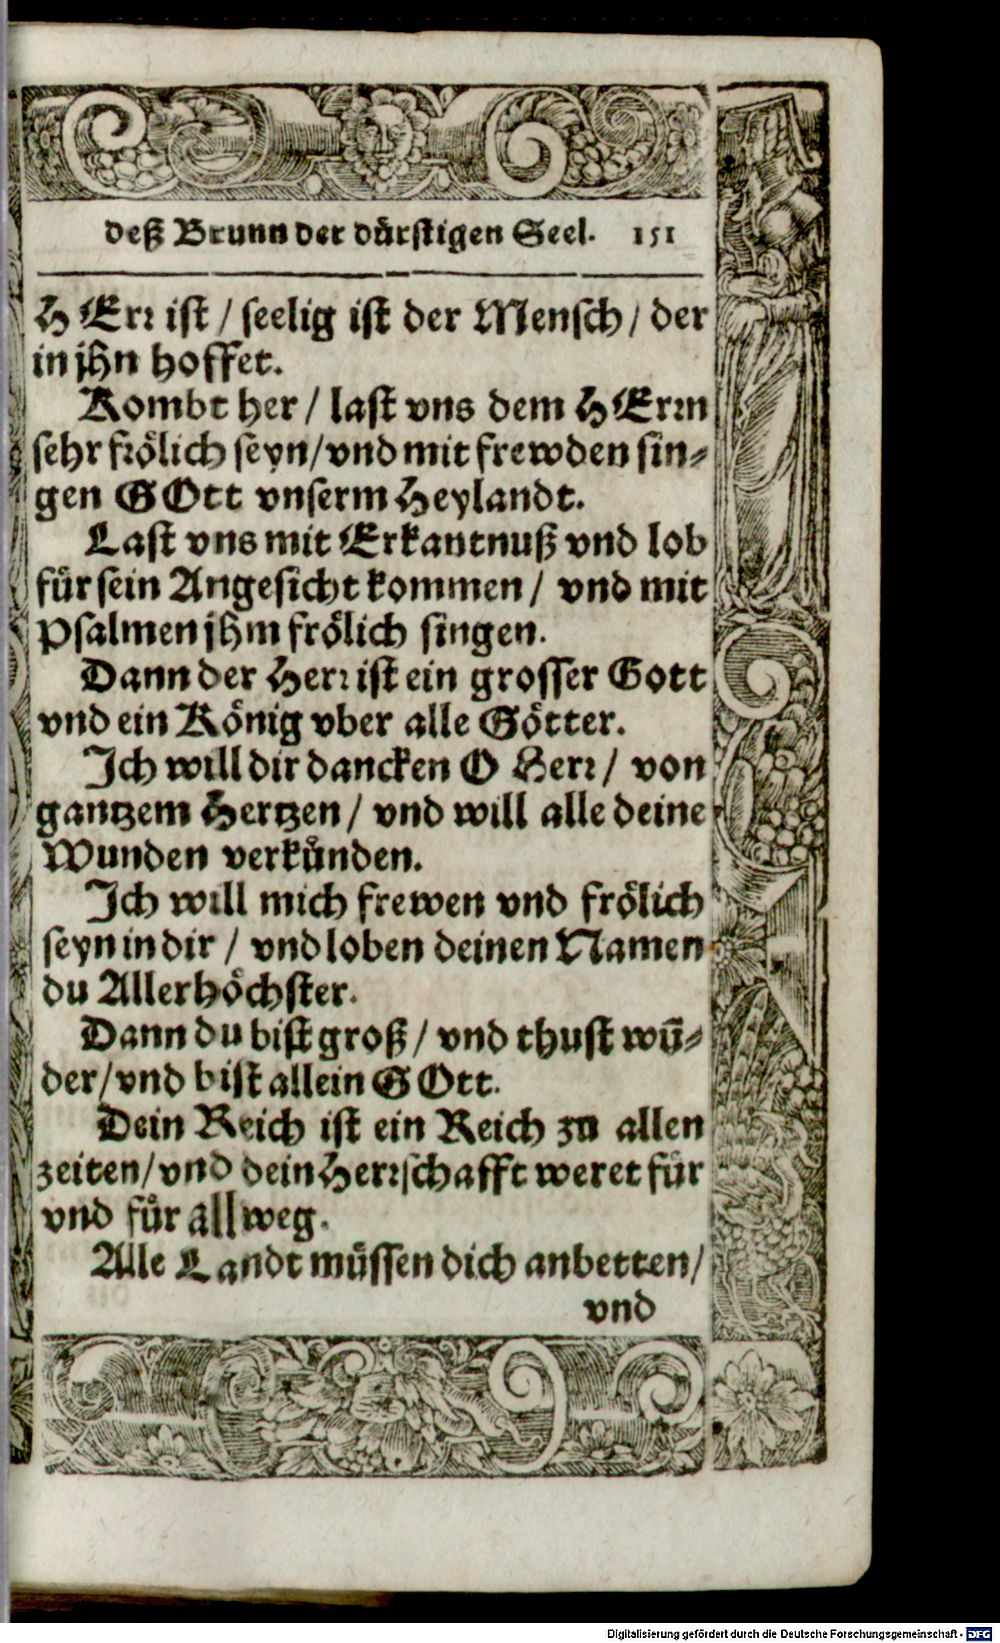 deß Brunn der dürstigen Seel. 151
HErr ist / seelig ist der Mensch / der
in jhn hoffet.
Kombt her / last vns dem HErrn
sehr frölich seyn/vnd mit frewden sin-
gen GOtt vnserm Heylandt.
Last vns mit Erkantnuß vnd lob
für sein Angesicht kommen / vnd mit
Psalmen jhm frölich singen.
Dann der Herr ist ein grosser Gott
vnd ein König vber alle Götter.
Ich will dir dancken O Herr / von
gantzem Hertzen / vnd will alle deine
Wunden verkünden.
Ich will mich frewen vnd frölich
seyn in dir / vnd loben deinen Namen
du Allerhöchster.
Dann du bist groß / vnd thust wū-
der/vnd bist allein GOtt.
Dein Reich ist ein Reich zu allen
zeiten/vnd dein Herrschafft weret für
vnd für allweg.
Alle Landt müssen dich anbetten/
vnd
Digitalisierung gefördert durch die Deutsche Forschungsgemeinschaft - DFG